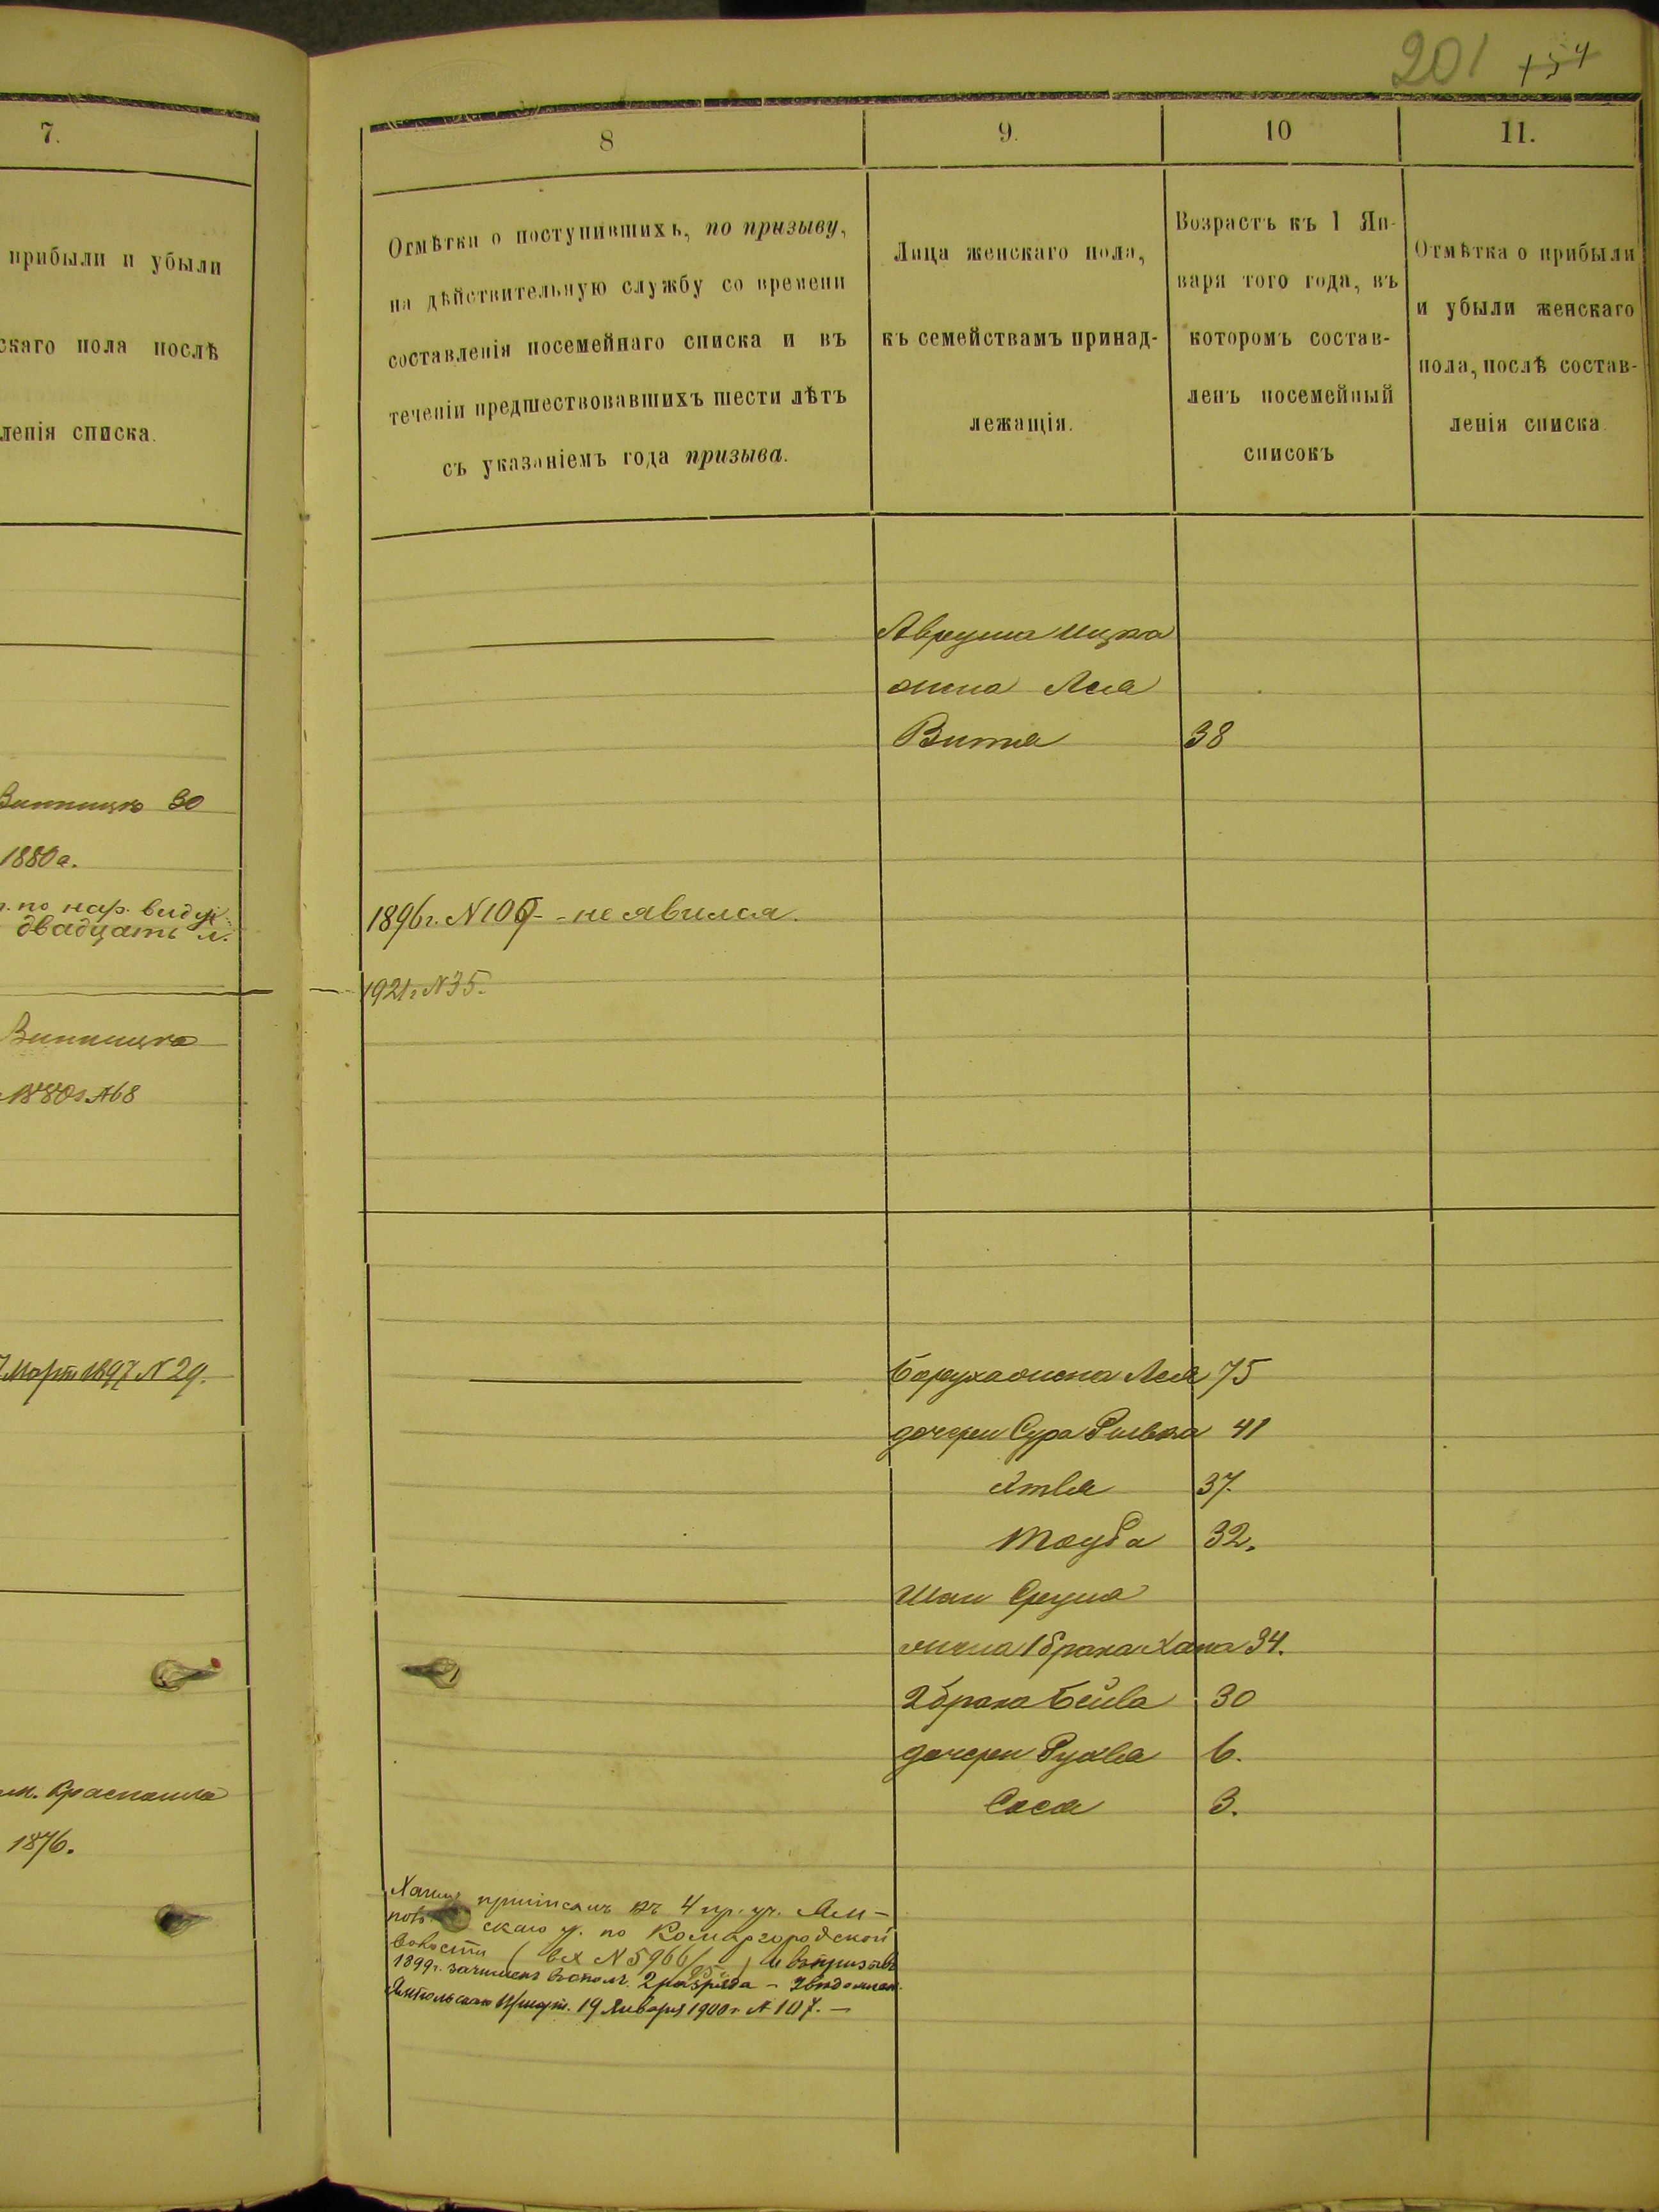 201 154
7.
прибыли и убыли
скаго пола послѣ
ленія списка.
Винницк 30
1880 г.
по нар. виду
двадцать л.
Винницко
1880 г. № 68
Март 1897 № 29.
м. Красношло
1876.
8
Отмѣтки о поступившихъ, по призыву,
на дѣйствительную службу со времени
составленія посемейнаго списка и въ
теченіи предшествовавшихъ шести лѣтъ
съ указаніемъ года призыва.
1896 г. № 109 - не явился.
1921 г. № 35.
приписанъ къ 4 пр. уч. Ям-
скаго у. по Комаргородской
волости (вх № 5966/95) и въ призывъ
1899 г. зачисленъ въ ополч. 2 разряда - Увѣдомлен.
Ямпольскаго 19 Января 1900 г № 107. -
9.
Лица женскаго пола,
къ семействамъ принад-
лежащія.
Аврума Ицка
жена Лея
Витя
Боруха жена Лея
дочери Сура Ривка
Этля
Тауба
Шаи Сруля
жена 1 брака Хана
2 брака Бейла
дочери Рухля
Сося
10
Возрастъ къ 1 Ян-
варя того года, въ
которомъ состав-
ленъ посемейный
списокъ
38
75
41
37.
32.
34.
30
6.
3.
11.
Отмѣтка о прибыли
и убыли женскаго
пола, послѣ состав-
ленія списка